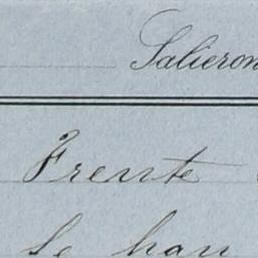 Salieron
Frente
Se han